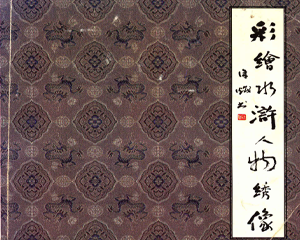 彩繪水滸人物綉像